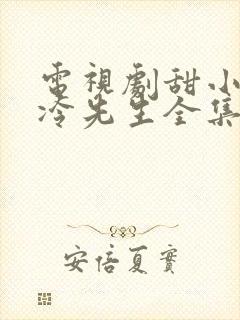 電視劇甜小
冷先生全集
安倍夏實